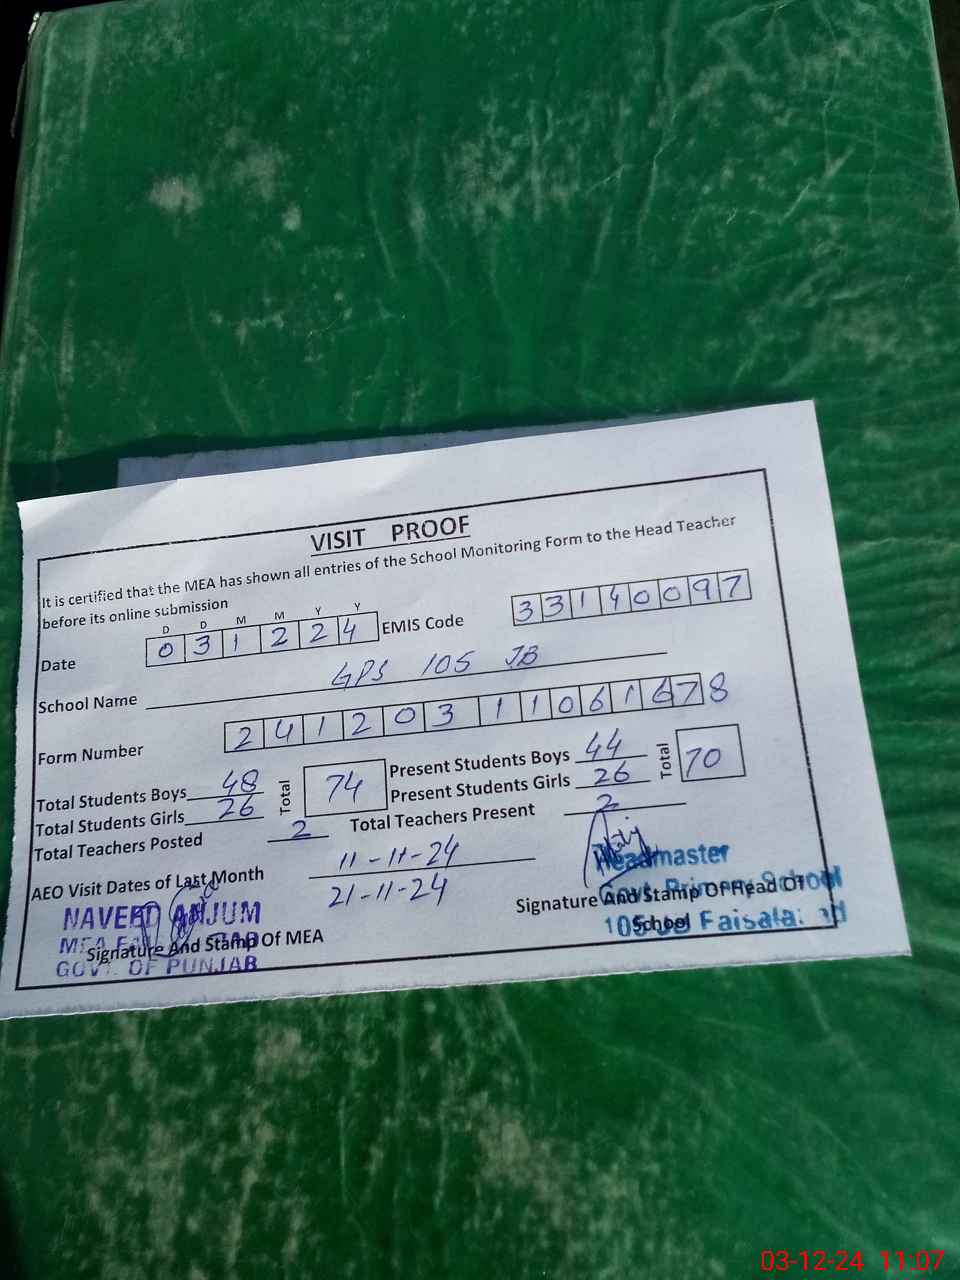 VISIT PROOF
It is certified that the MEA has shown all entries of the School Monitoring Form to the Head Teacher
before its online submission
D D M M Y Y
Date 0 3 1 2 2 4 EMIS Code 3 3 1 4 0 0 9 7
School Name GPS 105 JB
Form Number 2 4 1 2 0 3 1 1 0 6 1 6 7 8
Total Students Boys 48 Total 74 Present Students Boys 44 Total 70
Total Students Girls 26 Present Students Girls 26
Total Teachers Posted 2 Total Teachers Present 2
AEO Visit Dates of Last Month 11-11-24
21-11-24
NAVEED ANJUM
MEA
GOVT. OF PUNJAB
Signature And Stamp Of MEA
Headmaster
Govt. Primary School
105 Faisalabad
Signature And Stamp Of Head Of
School
03-12-24 11:07